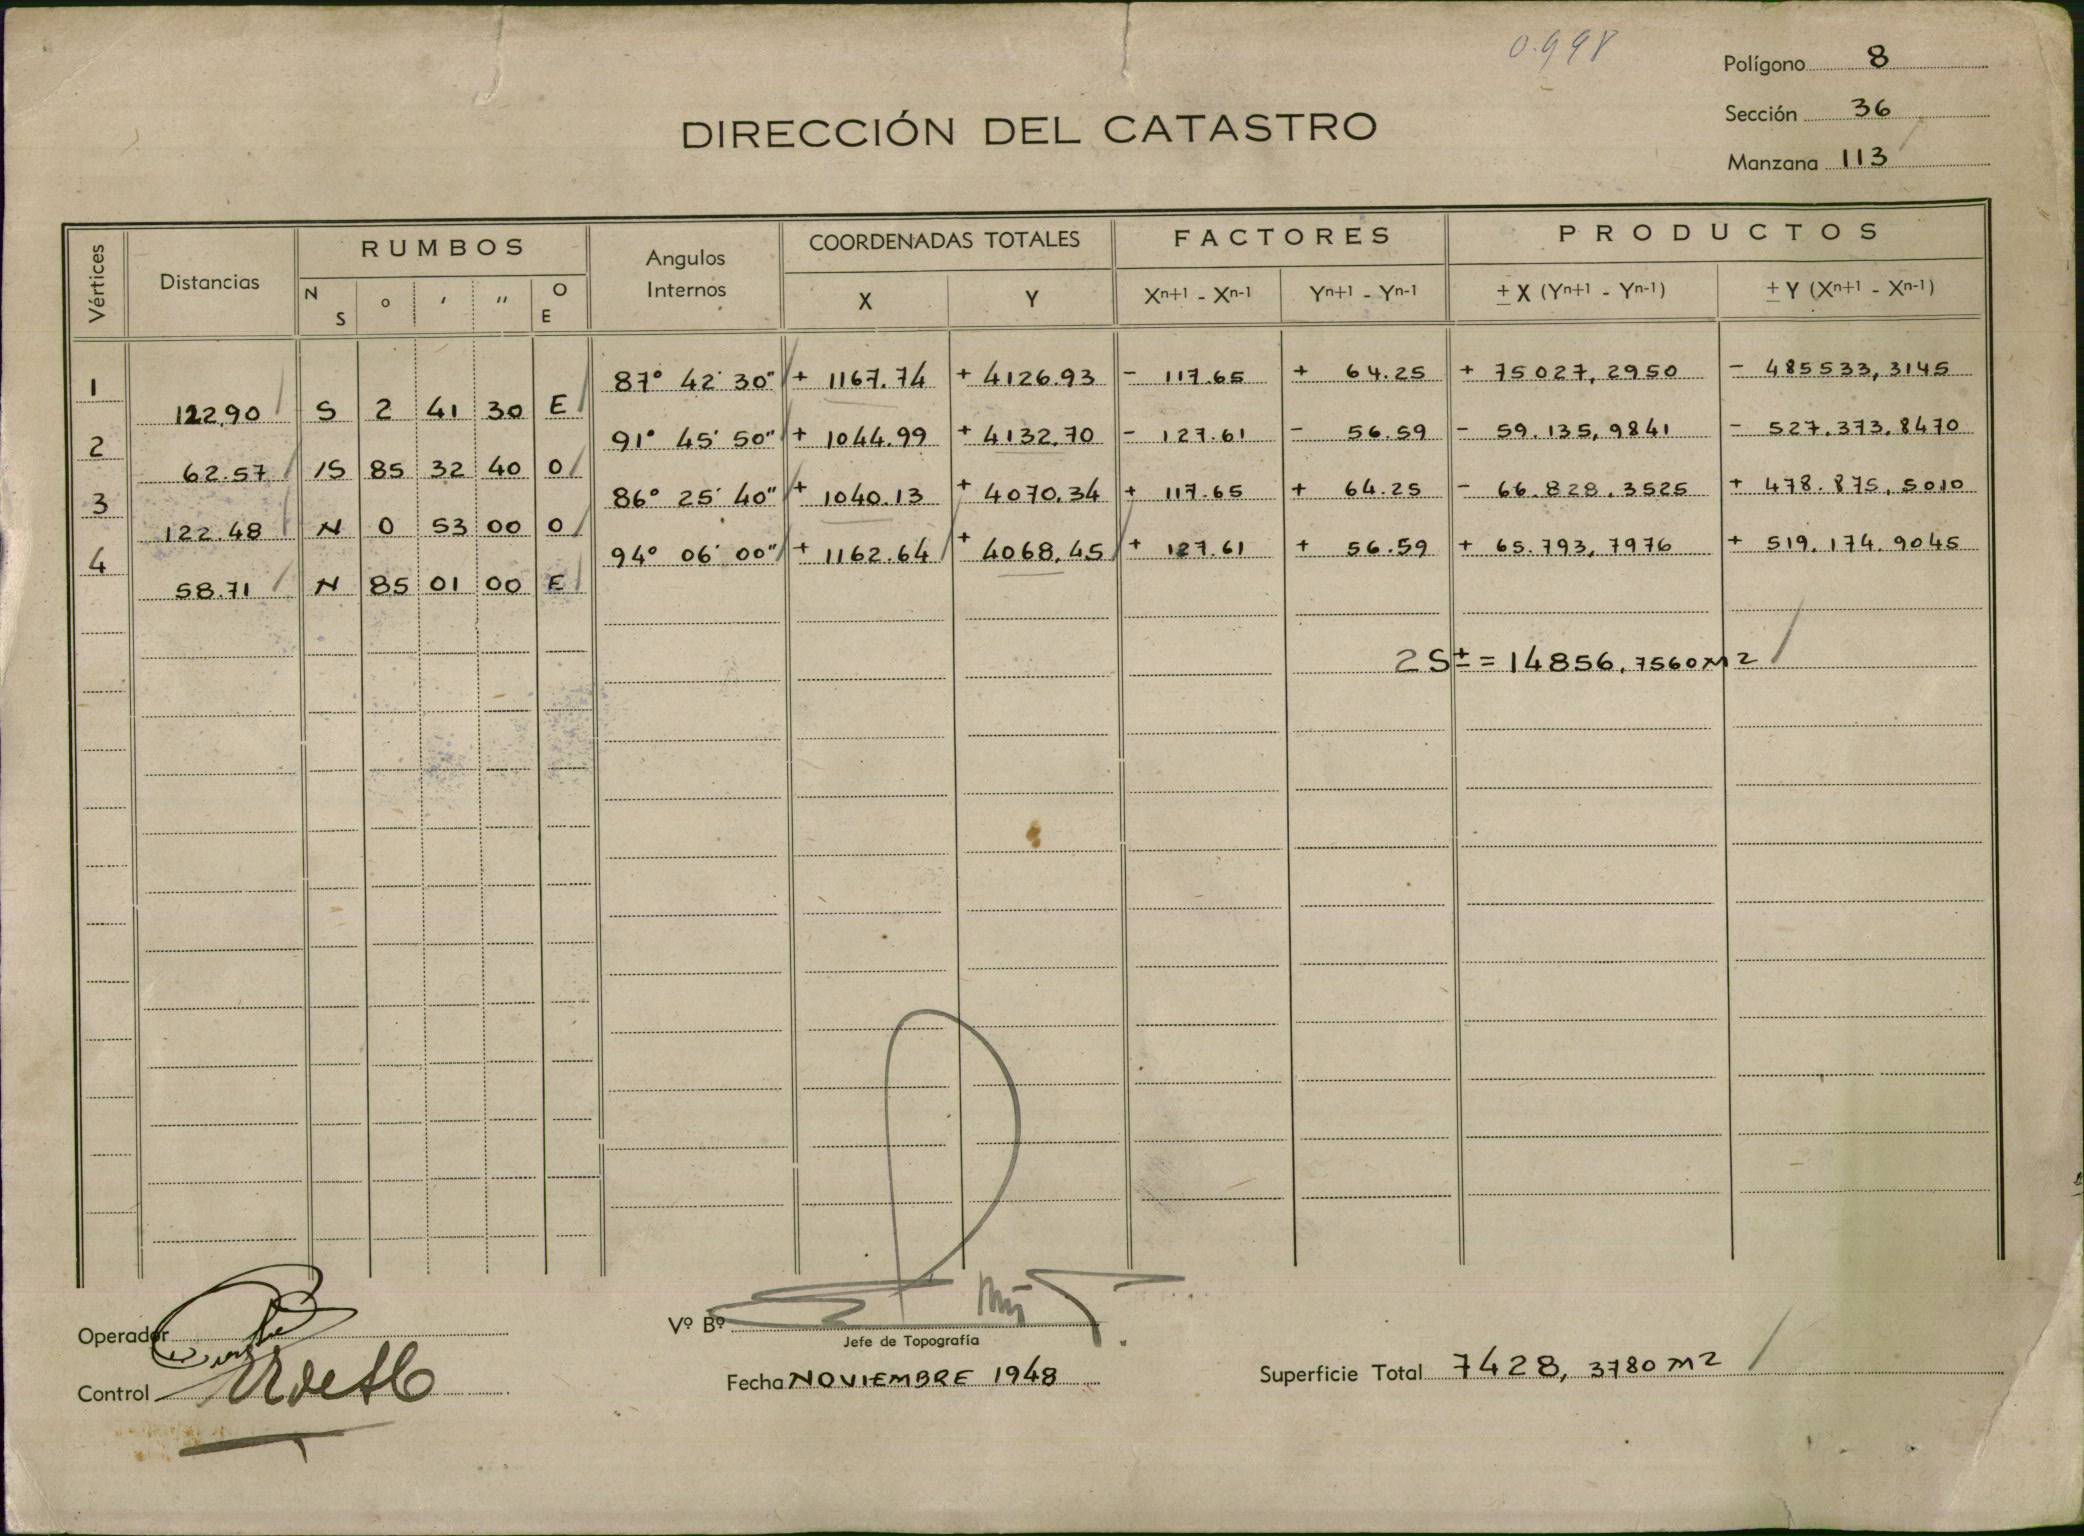 0.998
Polígono 8
Sección 36
Manzana 113
DIRECCIÓN DEL CATASTRO
Vértices Distancias RUMBOS Angulos Internos COORDENADAS TOTALES FACTORES PRODUCTOS
N S o ′ ″ O E X Y Xn+1 - Xn-1 Yn+1 - Yn-1 ± X (Yn+1 - Yn-1) ± Y (Xn+1 - Xn-1)
1 87° 42' 30" + 1167.74 + 4126.93 - 117.65 + 64.25 + 75027,2950 - 485533,3145
122.90 S 2 41 30 E
2 91° 45' 50" + 1044.99 + 4132.70 - 127.61 - 56.59 - 59.135,9841 - 527.373,8470
62.57 S 85 32 40 O
3 86° 25' 40" + 1040.13 + 4070.34 + 117.65 + 64.25 - 66.828.3525 + 478.875,5010
122.48 N 0 53 00 O
4 94° 06' 00" + 1162.64 + 4068.45 + 127.61 + 56.59 + 65.793,7976 + 519.174.9045
58.71 N 85 01 00 E
2S± = 14856,7560 M2
Operador
Control
Vº Bº
Jefe de Topografía
Fecha NOVIEMBRE 1948
Superficie Total 7428,3780 M2